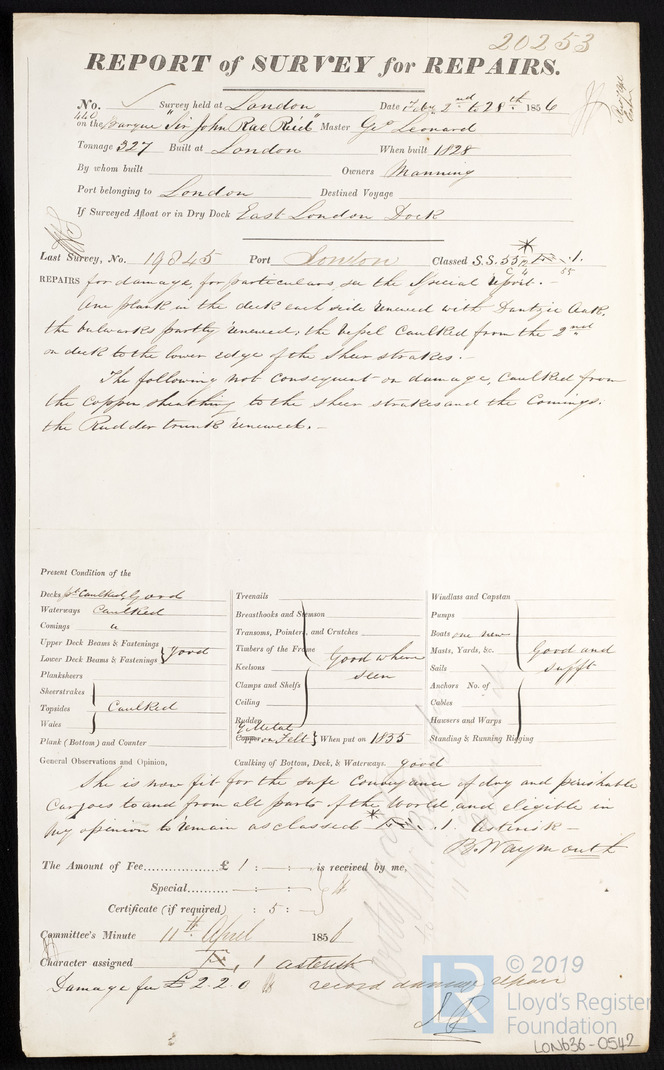 20253
REPORT of SURVEY for REPAIRS.
No. Survey held at London Date Feby 2nd to 28th 1856
440
on the Barque "Sir John Rae Reid" Master Geo Leonard
Tonnage 327 Built at London When built 1828
By whom built Owners Manning
Port belonging to London Destined Voyage
If Surveyed Afloat or in Dry Dock East London Dock
Last Survey, No. 19845 Port London Classed S.S. 55 1.
REPAIRS for damage, for particulars, see the Special report. -
One plank in the deck each side renewed with Dantzic Oak,
the bulwarks partly renewed, the Vessel Caulked from the 2nd
on deck to the lower edge of the Sheer strakes. -
The following not consequent on damage, Caulked from
the Copper sheathing to the sheer strakes and the Comings.
the Rudder trunk renewed. -
Present Condition of the
Decks pt Caulked, Good
Waterways Caulked
Comings "
Upper Deck Beams & Fastenings
Lower Deck Beams & Fastenings } Good
Planksheers
Sheerstrakes
Topsides } Caulked
Wales
Plank (Bottom) and Counter
Treenails
Breasthooks and Stemson
Transoms, Pointers, and Crutches
Timbers of the Frame
Keelsons } Good where seen
Clamps and Shelfs
Ceiling
Rudder
Y Metal
Copper on Felt } When put on 1855
Windlass and Capstan
Pumps
Boats one new
Masts, Yards, &c. } Good and
Sails sufft
Anchors No. of
Cables
Hawsers and Warps
Standing & Running Rigging
General Observations and Opinion, Caulking of Bottom, Deck, & Waterways. good
She is now fit for the safe Conveyance of dry and perishable
Cargoes to and from all parts of the World and eligible in
my opinion to remain as classed * 1 Asterisk -
B. Waymouth
The Amount of Fee............ £ 1 : - : - is received by me,
Special............ : - : -
Certificate (if required) : 5 : -
Committee's Minute 11th April 1856
Character assigned 1 asterisk
Damage fee £ 2 2 0 record damage repair
© 2019
LR
Lloyd's Register
Foundation
LON636-0542